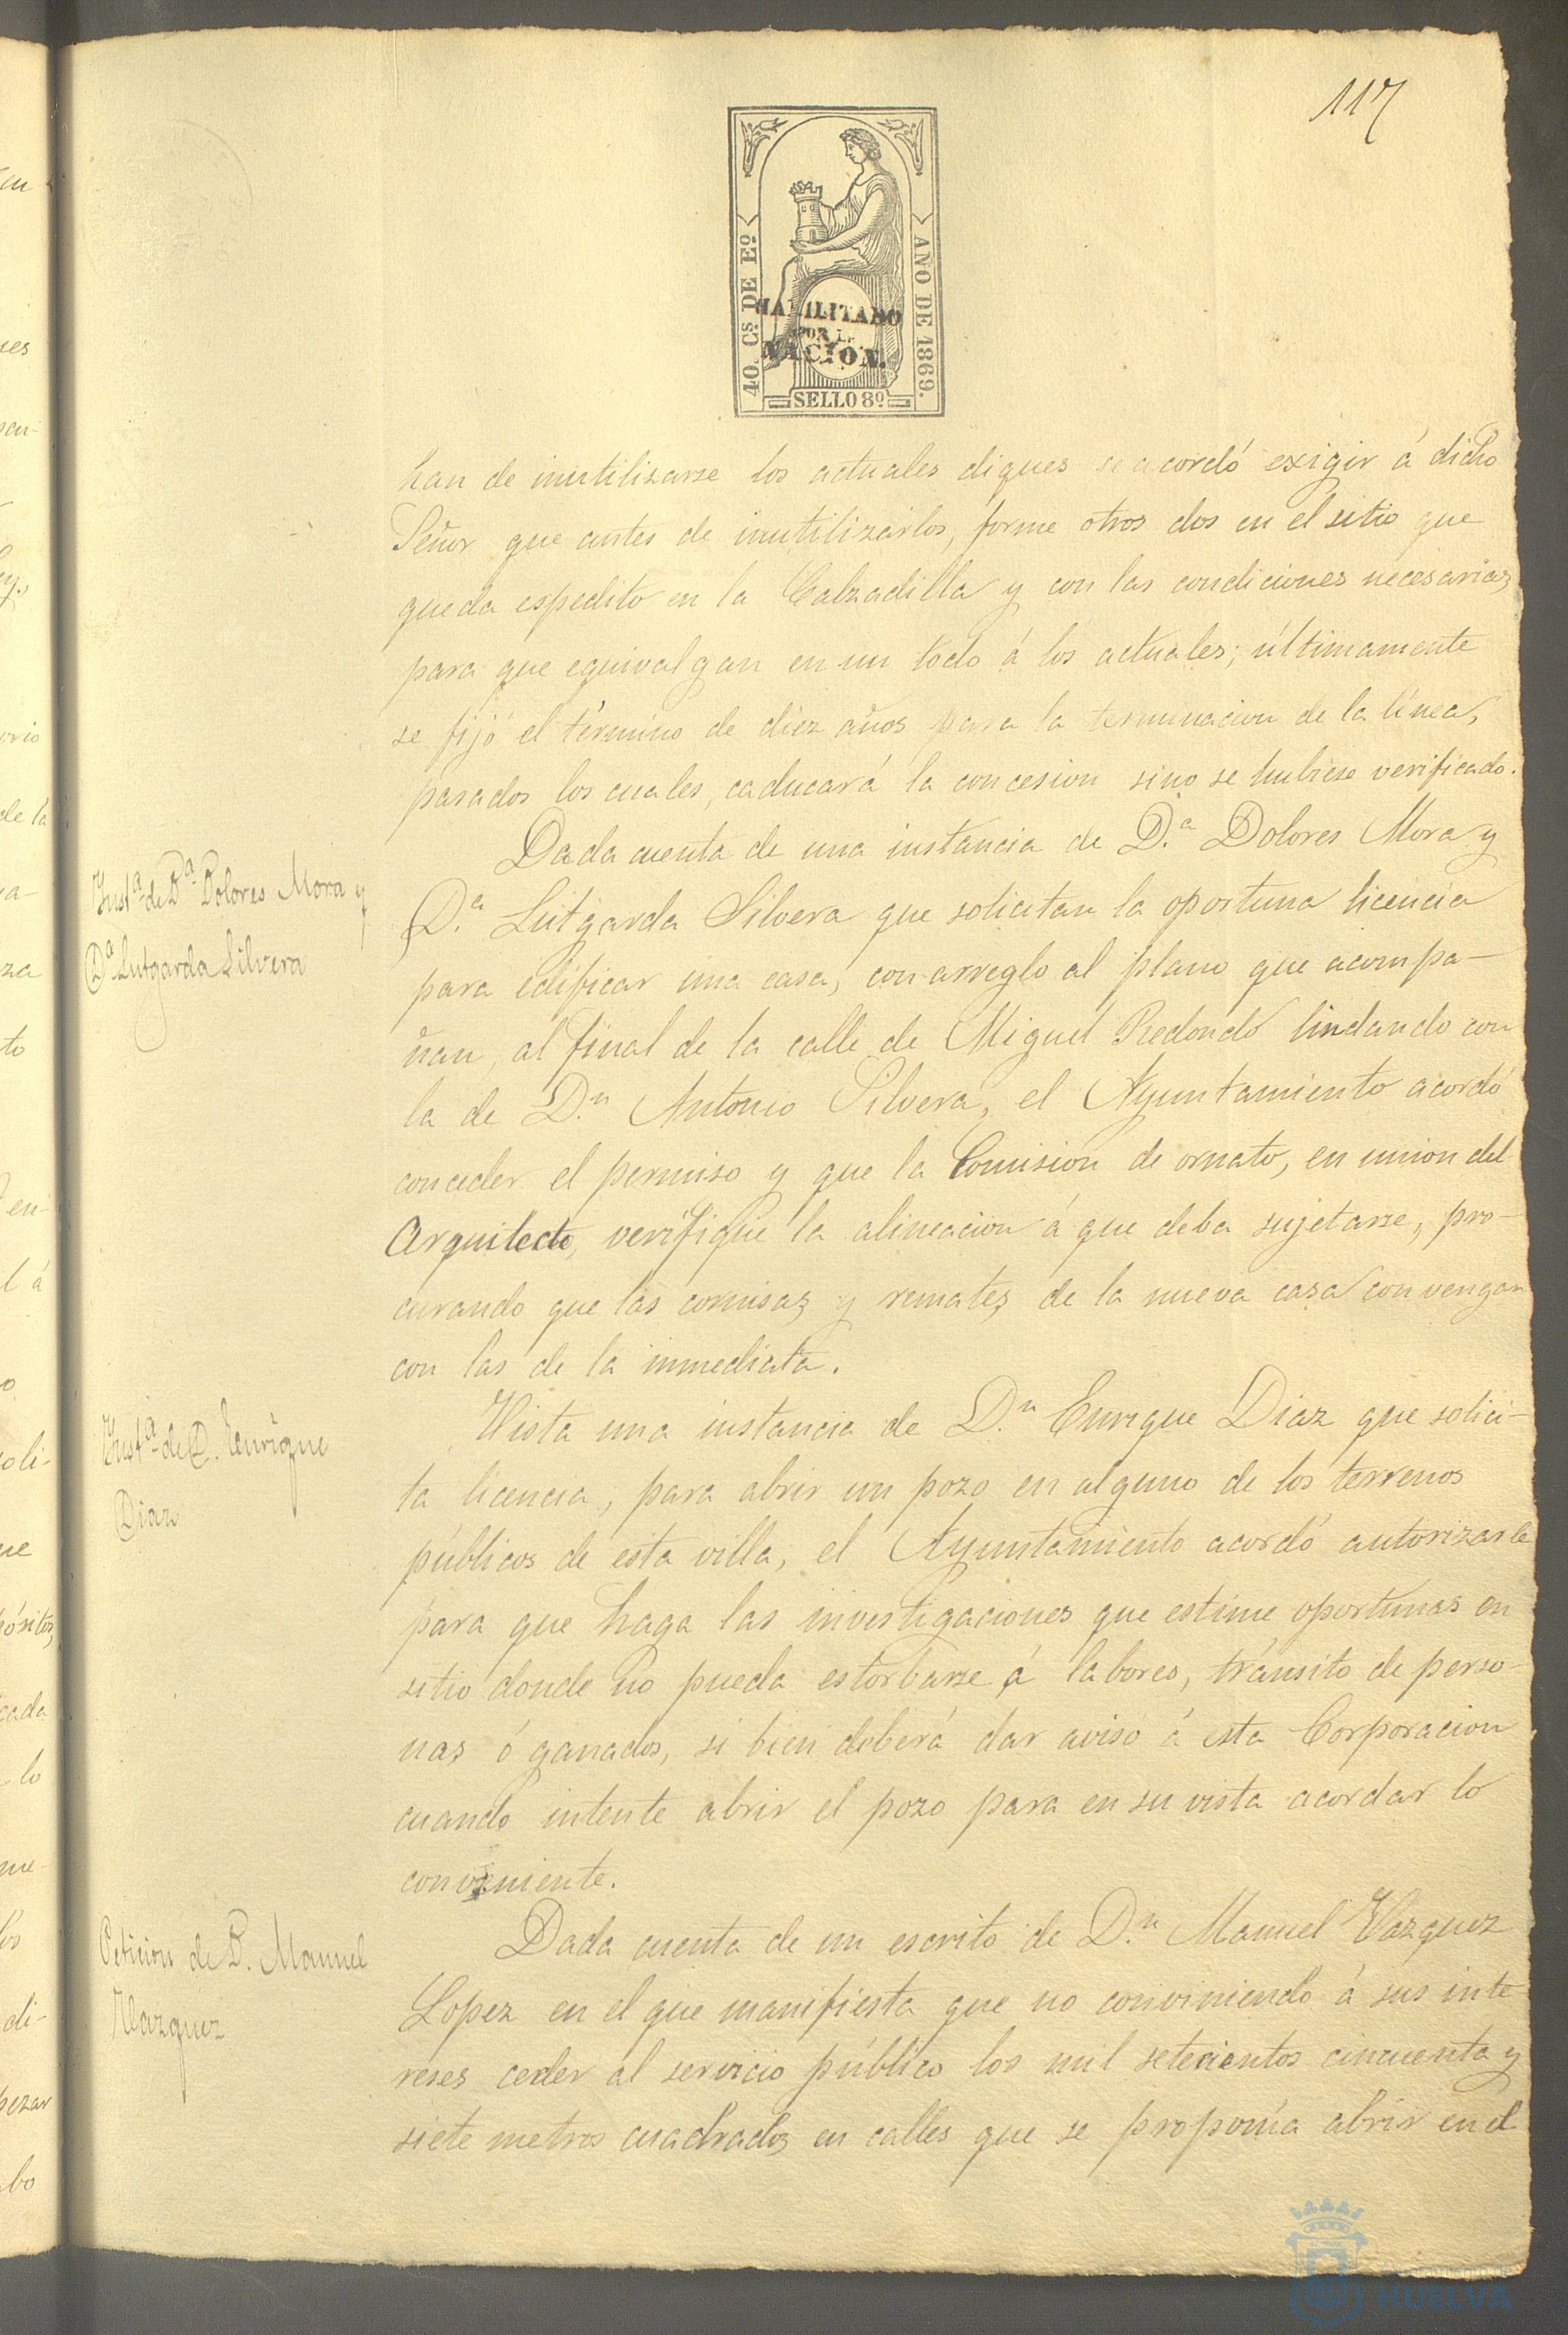 117
40 Cs DE Eº
AÑO DE 1869.
HABILITADO
POR LA
NACION.
SELLO 8º
han de inutilizarse los actuales diques se acordó exigir á dicho
Señor que antes de inutilizarlos, forme otros dos en el sitio que
queda espedito en la Calzadilla y con las condiciones necesarias,
para que equivalgan en un todo á los actuales; últimamente
se fijó el término de diez años para la terminacion de la linea,
pasados los cuales, caducará la concesion sino se hubiese verificado.
Insta de Da Dolores Mora y
Da Lutgarda Silvera
Dada cuenta de una instancia de D.a Dolores Mora y
D.a Lutgarda Silvera que solicitan la oportuna licencia
para edificar una casa, con arreglo al plano que acompa-
ñan, al final de la calle de Miguel Redondo lindando con
la de D.n Antonio Silvera, el Ayuntamiento acordó
conceder el permiso y que la Comision de ornato, en union del
Arquitecto, verifique la alineacion á que deba sujetarse, pro-
curando que las cornisas y remates de la nueva casa convengan
con las de la inmediata.
Insta de D. Enrique
Diaz
Vista una instancia de D.n Enrique Diaz que solici-
ta licencia, para abrir un pozo en alguno de los terrenos
públicos de esta villa, el Ayuntamiento acordó autorizarle
para que haga las investigaciones que estime oportunas en
sitio donde no pueda estorbarse á labores, tránsito de perso-
nas ó ganados, si bien deberá dar aviso á esta Corporacion
cuando intente abrir el pozo para en su vista acordar lo
conveniente.
Peticion de D. Manuel
Vazquez
Dada cuenta de un escrito de D.n Manuel Vazquez
Lopez en el que manifiesta que no conviniendo á sus inte-
reses ceder al servicio público los mil setecientos cincuenta y
siete metros cuadrados en calles que se proponia abrir en el
HUELVA